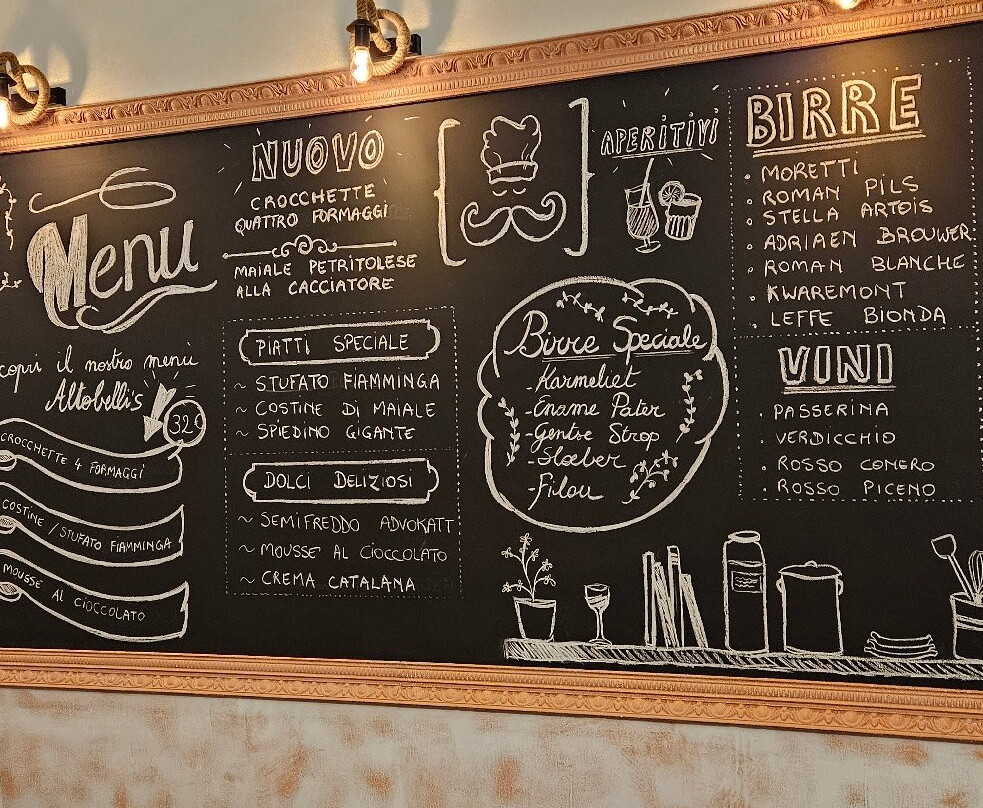 Menu
copri il nostro menù
Altobelli's
32€
CROCCHETTE 4 FORMAGGI
COSTINE / STUFATO FIAMMINGA
MOUSSE AL CIOCCOLATO
NUOVO
CROCCHETTE
QUATTRO FORMAGGI
MAIALE PETRITOLESE
ALLA CACCIATORE
PIATTI SPECIALE
~ STUFATO FIAMMINGA
~ COSTINE DI MAIALE
~ SPIEDINO GIGANTE
DOLCI DELIZIOSI
~ SEMIFREDDO ADVOKATT
~ MOUSSE AL CIOCCOLATO
~ CREMA CATALANA
APERITIVI
Birre Speciale
-Karmeliet
-Ename Pater
-Gentse Strop
-Sloeber
-Filou
BIRRE
• MORETTI
• ROMAN PILS
• STELLA ARTOIS
• ADRIAEN BROUWER
• ROMAN BLANCHE
• KWAREMONT
• LEFFE BIONDA
VINI
• PASSERINA
• VERDICCHIO
• ROSSO CONERO
• ROSSO PICENO